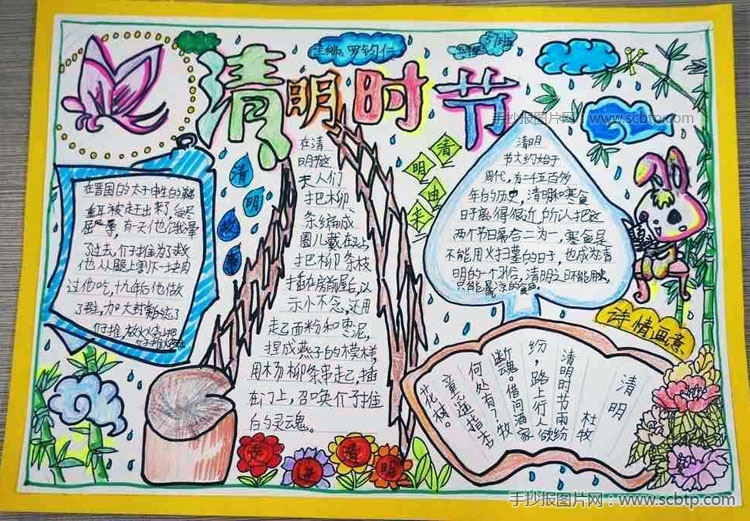 主编：罗钧仁
清明时节
手抄报图片网：www.scbtp.com
清
明
故
事
在晋国的太子申生的弟弟
重耳被赶出来了受尽
屈辱有一天他们饿晕
了过去，介子推为了救
他从腿上割下一块肉
过他吃，十九年后他做
了君主，加大封赏忘了
介子推，放火烧山把
在清
明节这
天人们
把柳
条编成
圈儿戴在头上
把柳条枝
插在房前屋后，以
示小不念，还用
起面粉和枣泥，
捏成燕子的模样，
用杨柳条串起，插
在门上，召唤介子推
的灵魂。
清
明
由
来
清明
节大约始于
周代，有二千五百多
年的历史，清明和寒食
日子离得很近，所以把这
两个节日合二为一，寒食是
不能用火扫墓的日子，也成为清
明的一个习俗，清明这日不能用火，
只能食凉的食品。
诗情画意
清明
杜牧
清明时节雨纷
纷，路上行人欲
断魂。借问酒家
何处有？牧
童遥指杏
花村。
清
明
手抄报图片网：www.scbtp.com